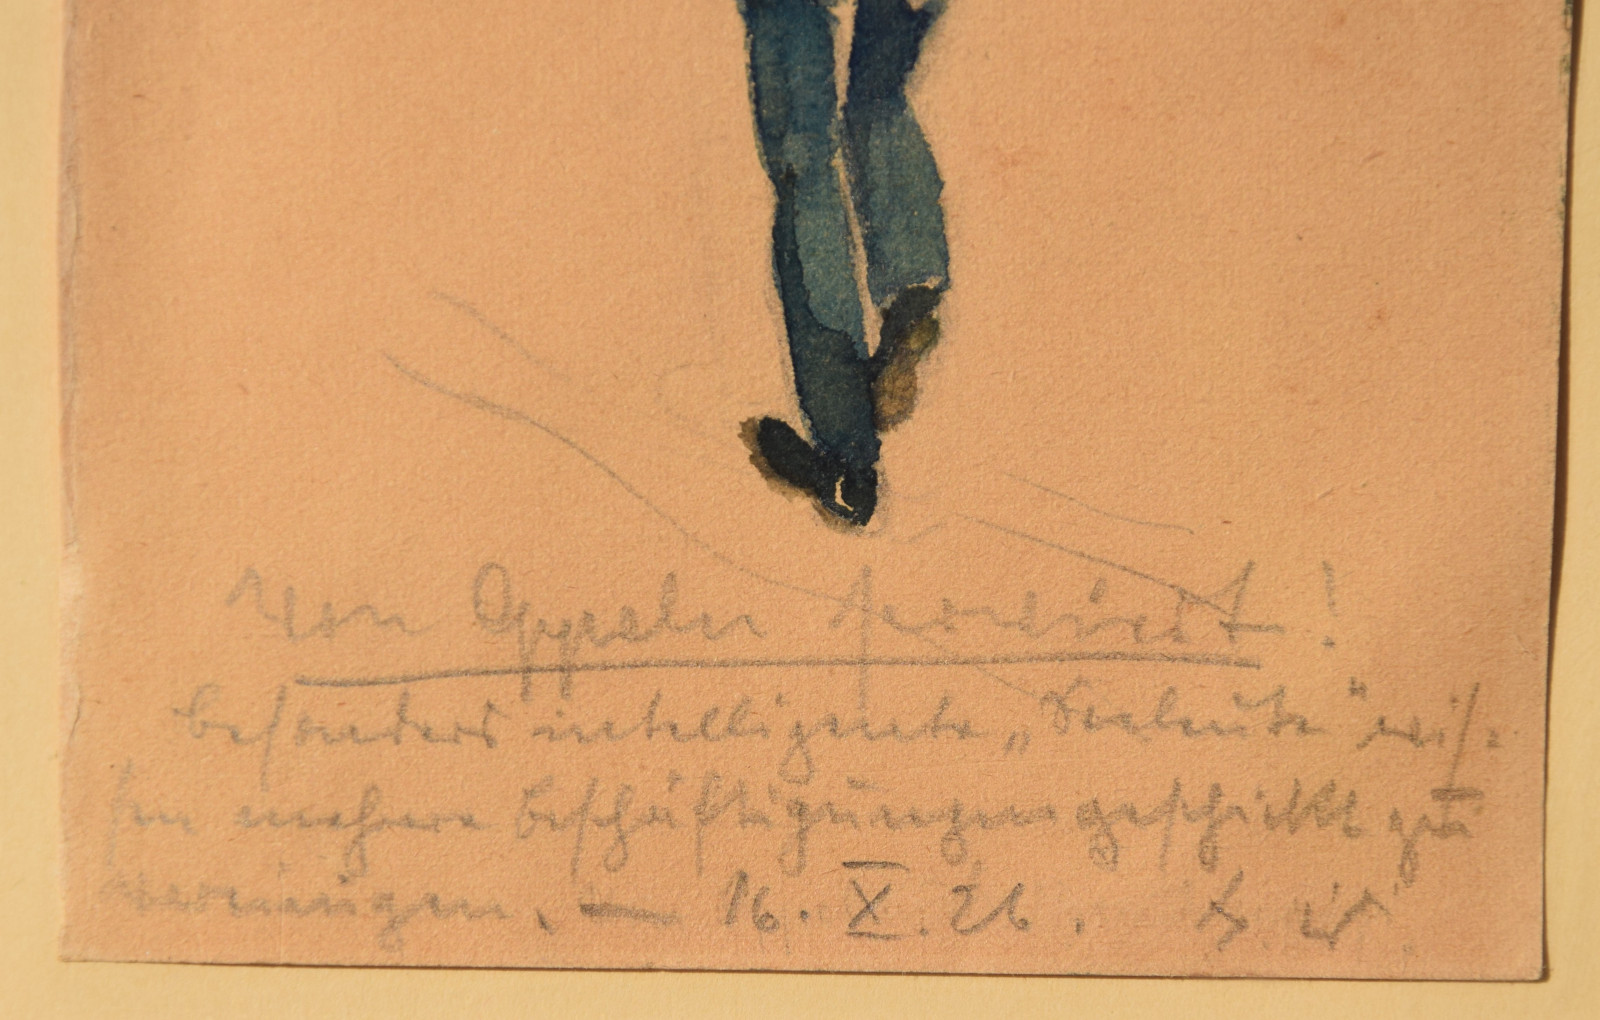 Von Appeln serviert!
besonders intelligente „Seeleute" wis=
sen mehrere Beschäftigungen geschickt zu
vereinigen. — 16. X. 26.